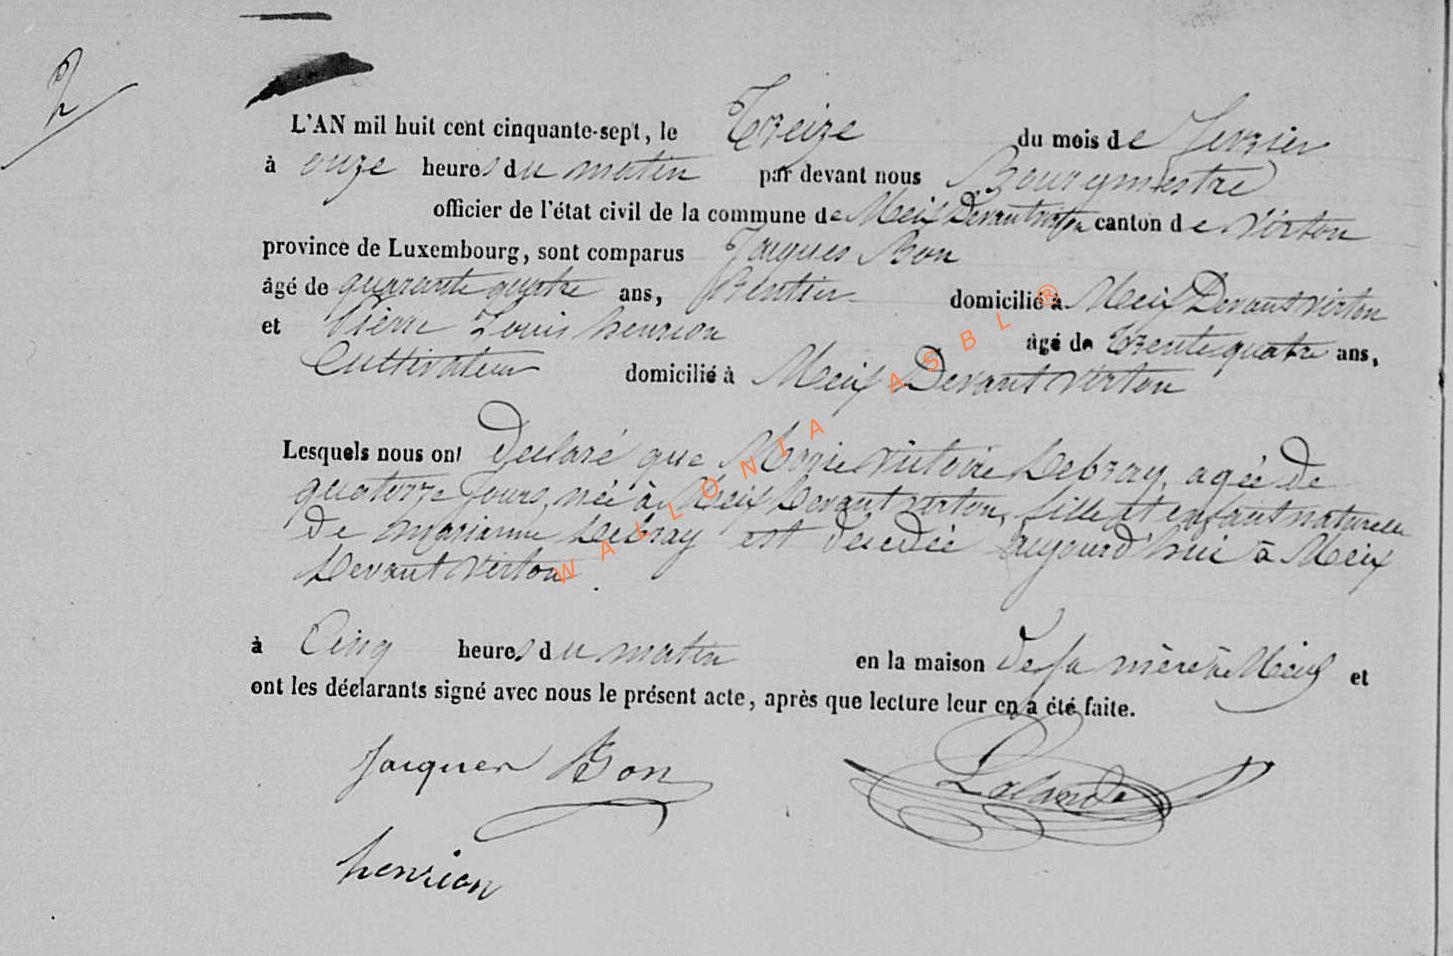 2
L'AN mil huit cent cinquante-sept, le Treize du mois de fevrier
à onze heures du matin par devant nous Bourgmestre
officier de l'état civil de la commune de Meix Devant virton canton de virton
province de Luxembourg, sont comparus Jacques Bon
âgé de quarante quatre ans, Rentier domicilié à Meix Devant virton
et Pierre Louis henrion âgé de Trente quatre ans,
Cultivateur domicilié à Meix Devant virton
Lesquels nous ont declaré que Marie victoire Lebray, agée de
quatorze Jours, née à Meix Devant virton, fille et enfant naturelle
de Marianne Lebray est decedée aujourd'hui à Meix
Devant virton.
à Cinq heures du matin en la maison de sa mère à Meix et
ont les déclarants signé avec nous le présent acte, après que lecture leur en a été faite.
Jacques Bon Lalande
henrion
WALLONIA ASBL ®